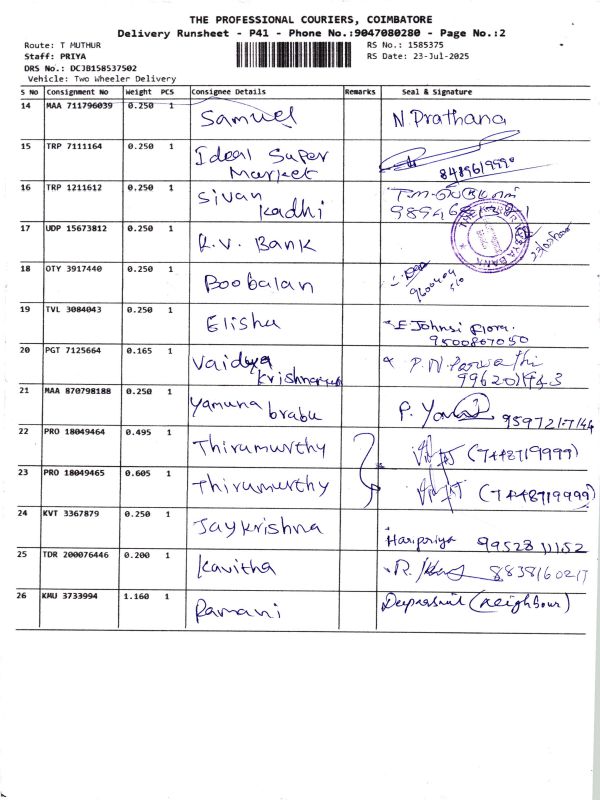 THE PROFESSIONAL COURIERS, COIMBATORE
Delivery Runsheet - P41 - Phone No.:9047080280 - Page No.:2
Route: T MUTHUR RS No.: 1585375
Staff: PRIYA RS Date: 23-Jul-2025
DRS No.: DCJB158537502
Vehicle: Two Wheeler Delivery
S No Consignment No Weight PCS Consignee Details Remarks Seal & Signature
14 MAA 711796039 0.250 1 Samuel N Prathana
15 TRP 7111164 0.250 1 Ideal Super
Market 8489619990
16 TRP 1211612 0.250 1 Sivan
Kadhi
17 UDP 15673812 0.250 1 K.V. Bank
18 OTY 3917440 0.250 1 Boobalan
19 TVL 3084043 0.250 1 Elisha E Johnsi Flora.
9500867050
20 PGT 7125664 0.165 1 Vaidya P. N. Parwathi
21 MAA 870798188 0.250 1 Yamuna brabu P.
22 PRO 18049464 0.495 1 Thirumurthy (7448719999)
23 PRO 18049465 0.605 1 Thirumurthy (7448719999)
24 KVT 3367879 0.250 1 Jaykrishna Haripriya 9952811152
25 TDR 200076446 0.200 1 Kavitha R. 8838160217
26 KMU 3733994 1.160 1 Ramani (Neighbour)